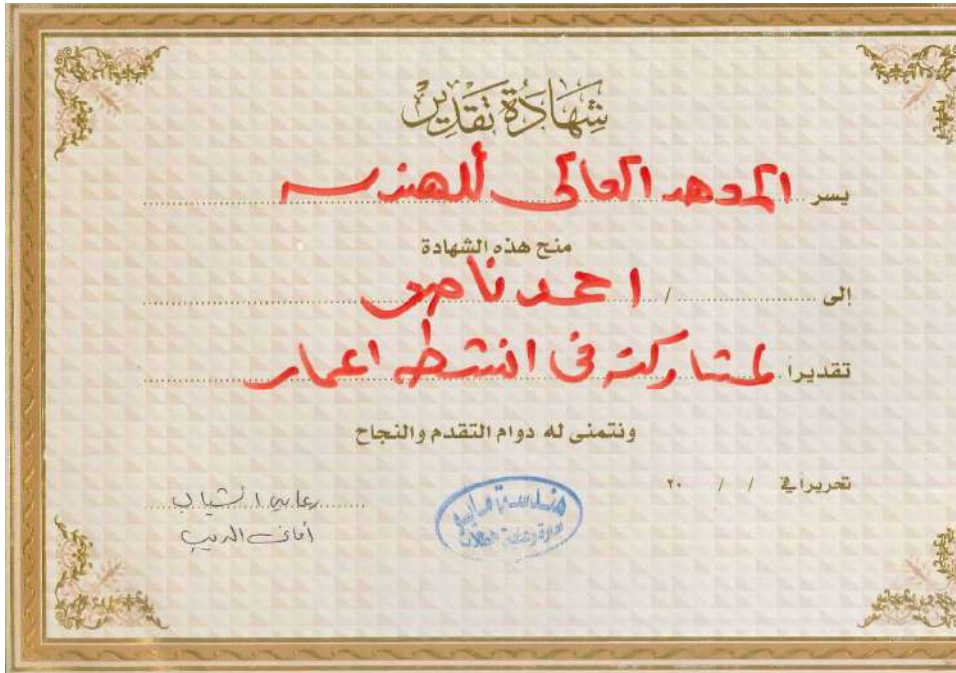 شهادة تقدير
يسر المعهد العالى للهندسه
منح هذه الشهادة
إلى / احمد ناصر
تقديراً لمشاركته فى انشطه اعمار
ونتمنى له دوام التقدم والنجاح
تحريراً في / / ٢٠
رعاية الشباب
أمانى الديب
هندسة مايو
إدارة رعاية الطلاب